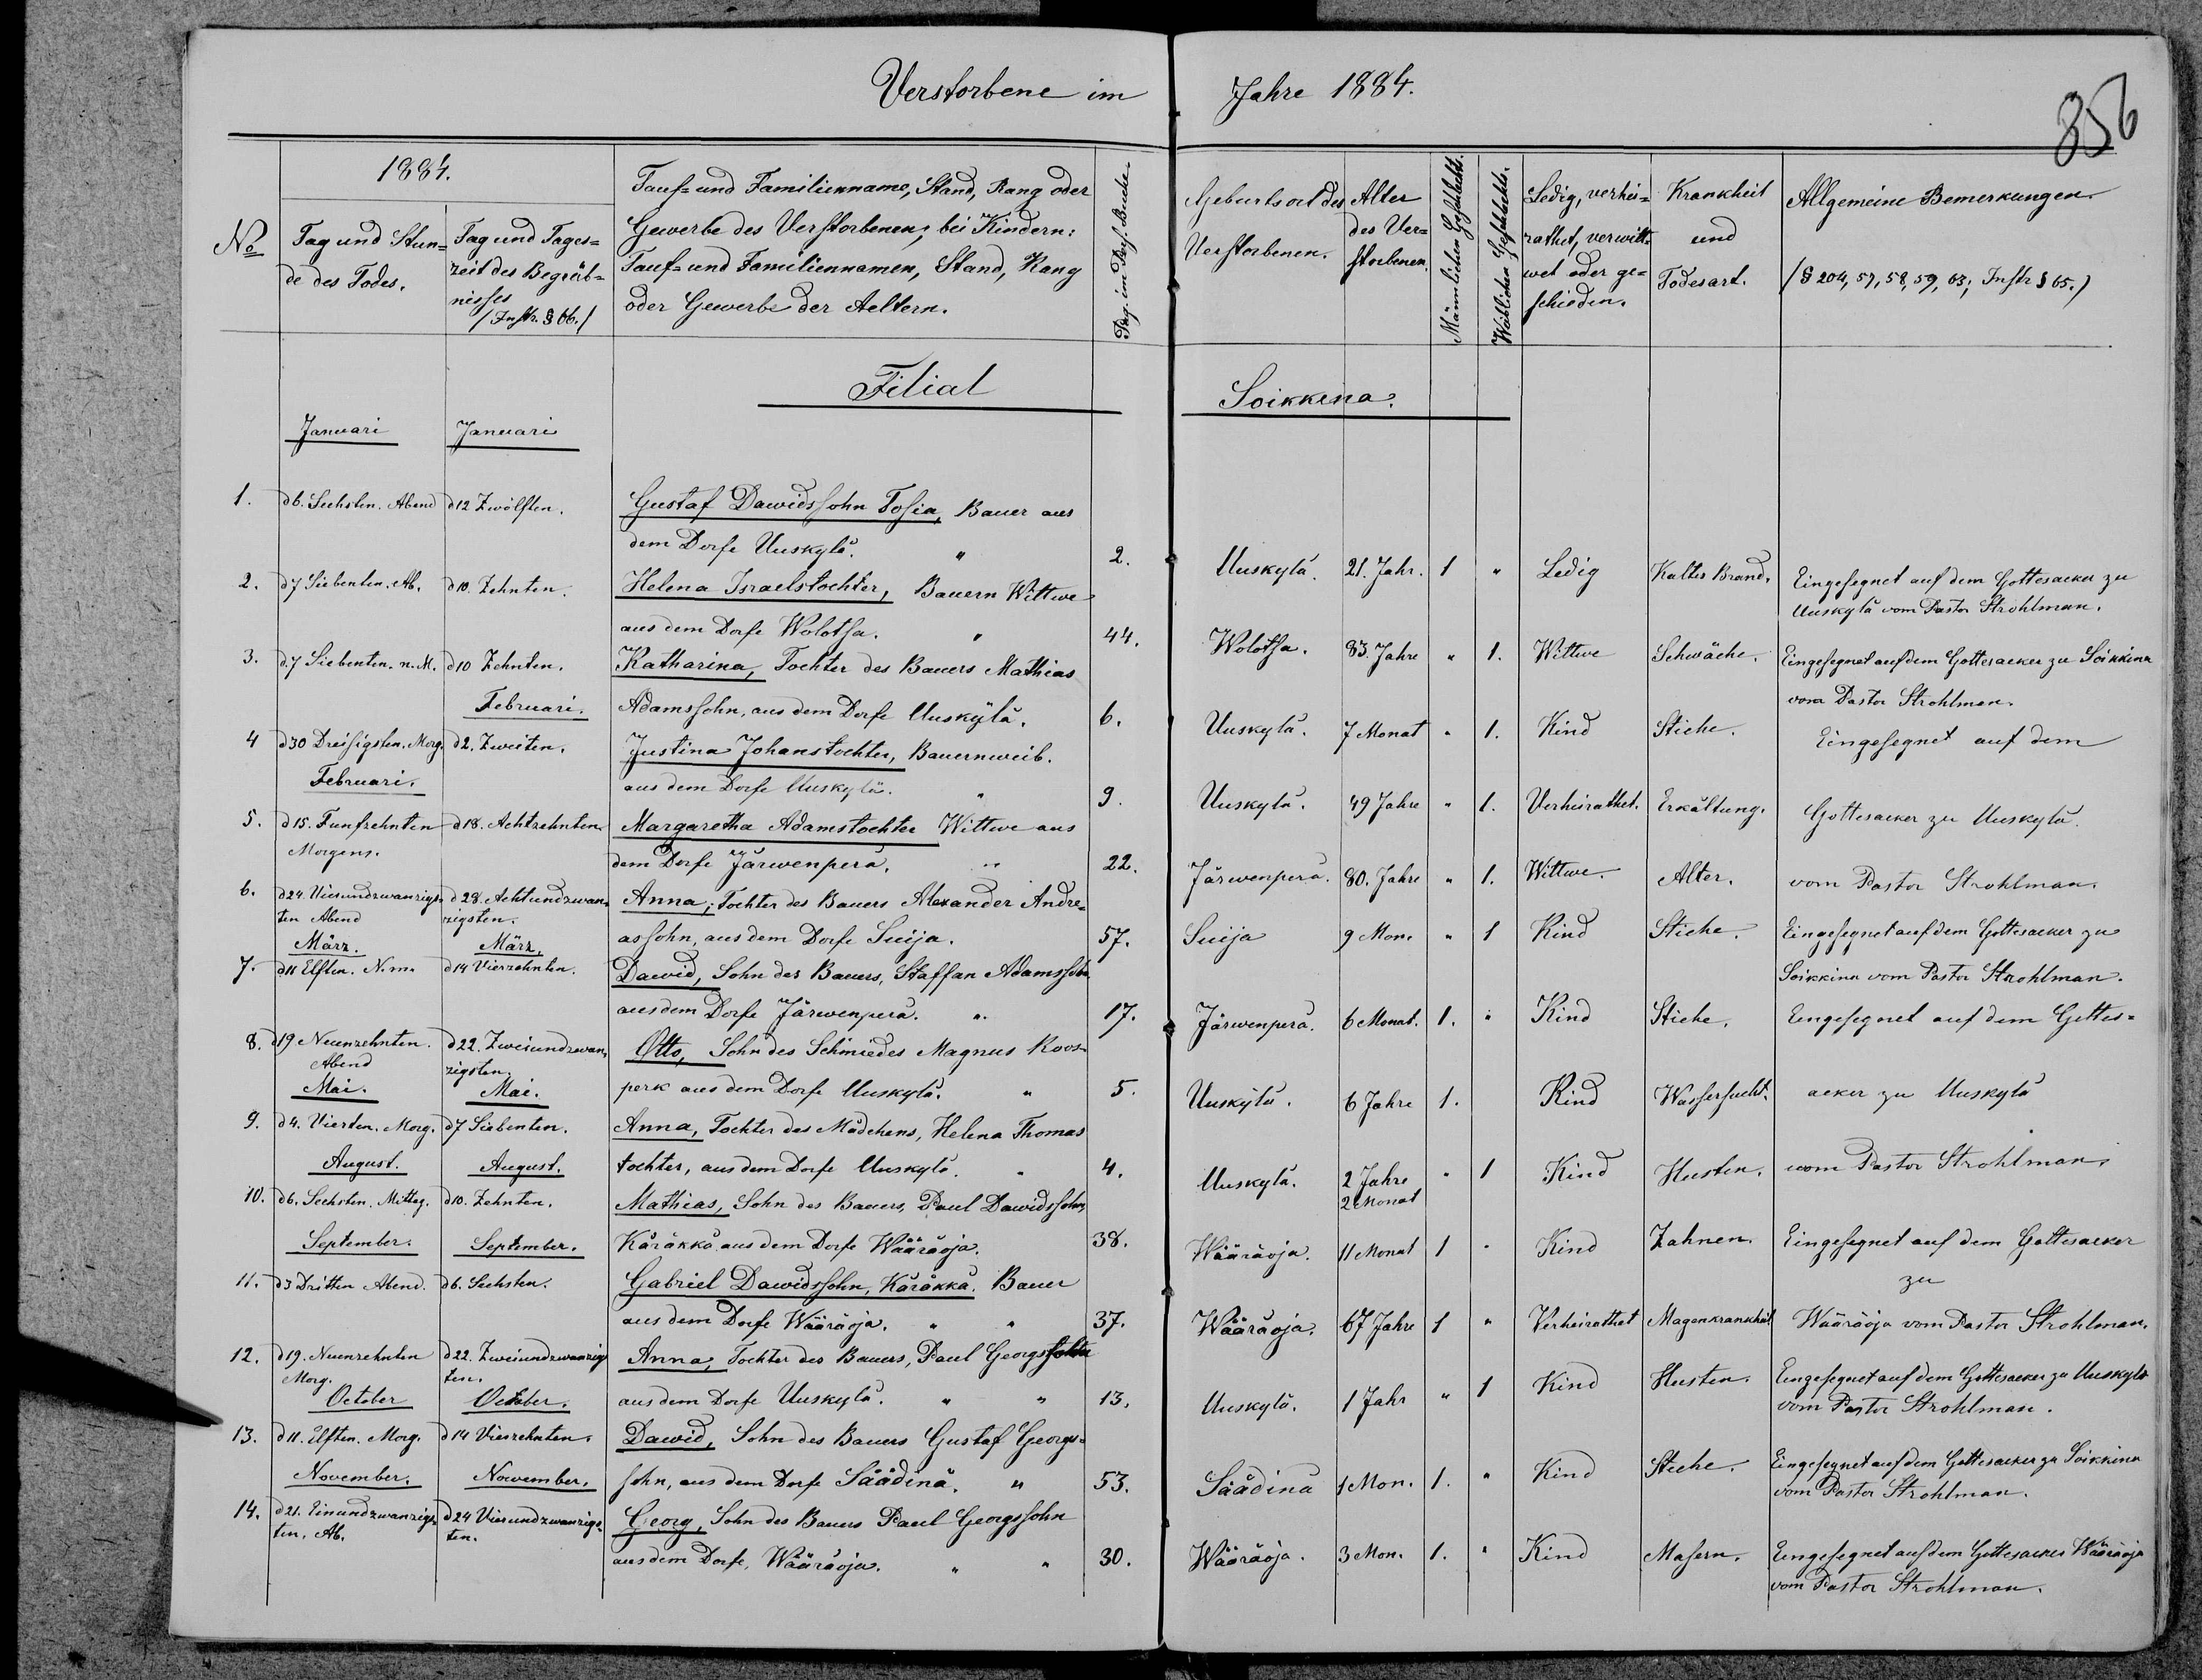 Verstorbene im Jahre 1884.
856
No
1884.
Tag und Stun=
de des Todes.
Tag und Tages=
zeit des Begräb=
nisses
/Instr. § 66./
Tauf= und Familienname, Stand, Rang oder
Gewerbe des Verstorbenen; bei Kindern:
Tauf= und Familiennamen, Stand, Rang
oder Gewerbe der Aeltern.
Pag. im Pers. Buche.
Geburtsort des
Verstorbenen.
Alter
des Ver=
storbenen.
Männlichen Geschlechts.
Weiblichen Geschlechts.
Ledig, verhei=
rathet, verwitt=
wet oder ge=
schieden.
Krankheit
und
Todesart.
Allgemeine Bemerkungen.
/§ 204, 57, 58, 59, 63; Instr § 65./
Filial Soikkina.
Januari Januari
1. d 6. Sechsten. Abend d 12 Zwölften. Gustaf Dawidssohn Tosia, Bauer aus
dem Dorfe Uuskylä. " 2. Uuskylä. 21. Jahr. 1 " Ledig Kalter Brand. Eingesegnet auf dem Gottesacker zu
Uuskylä vom Pastor Strohlman.
2. d 7 Siebenten. Ab. d 10. Zehnten. Helena Israelstochter, Bauern Wittwe
aus dem Dorfe Wolotsa. " 44. Wolotsa. 83. Jahre " 1. Wittwe Schwäche. Eingesegnet auf dem Gottesacker zu Soikkina
vom Pastor Strohlman.
3. d. 7 Siebenten. n. M. d 10 Zehnten. Katharina, Tochter des Bauers Mathias
Februari. Adamssohn, aus dem Dorfe Uuskylä. 6. Uuskylä. 7 Monat " 1. Kind Stiche. Eingesegnet auf dem
4 d 30 Dreisigsten. Morg. d 2. Zweiten. Justina Johanstochter, Bauernweib.
Februari. aus dem Dorfe Uuskylä. " 9. Uuskylä. 49 Jahre " 1. Verheirathet. Erkältung. Gottesacker zu Uuskylä.
5. d 15. Funfzehnten d 18. Achtzehnten. Margaretha Adamstochter Wittwe aus
Morgens. dem Dorfe Järwenperä. " 22. Järwenperä. 80. Jahre " 1. Wittwe. Alter. vom Pastor Strohlman.
6. d 24. Vierundzwanzigs= d 28. Achtundzwan= Anna, Tochter des Bauers Alexander Andre=
ten Abend zigsten.
März. März. assohn, aus dem Dorfe Suija. 57. Suija 9 Mon. " 1 Kind Stiche. Eingesegnet auf dem Gottesacker zu
Soikkina vom Pastor Strohlman.
7. d 11 Elften. N. m. d 14 Vierzehnten. Dawid, Sohn des Bauers, Staffan Adamssohn
aus dem Dorfe Järwenperä. " 17. Järwenperä. 6 Monat. 1. " Kind Stiche. Eingesegnet auf dem Gottes=
8. d 19 Neunzehnten. d 22. Zweiundzwan= Otto, Sohn des Schmiedes Magnus Koos=
Abend zigsten.
Mai. Mai. perk aus dem Dorfe Uuskylä. " 5. Uuskylä. 6 Jahre 1. Kind Wassersucht. acker zu Uuskylä
9. d 4. Vierten. Morg. d 7 Siebenten. Anna, Tochter des Mädchens, Helena Thomas
August. August. tochter, aus dem Dorfe Uuskylä. " 4. Uuskylä. 2 Jahre " 1 Kind Husten. vom Pastor Strohlman.
2 Monat
10. d 6. Sechsten. Mittag. d 10. Zehnten. Mathias, Sohn des Bauers, Paul Dawidssohn,
September. September. Käräkkä aus dem Dorfe Wääräoja. 38. Wääräoja. 11 Monat 1 " Kind Zahnen. Eingesegnet auf dem Gottesacker
zu
11. d 3 Dritten Abend. d 6. Sechsten. Gabriel Dawidssohn, Käräkkä. Bauer
aus dem Dorfe Wääräoja. " " 37. Wääräoja. 67 Jahre 1 " Verheirathet Magenkrankheit Wääräoja vom Pastor Strohlman.
12. d 19. Neunzehnten d 22. Zweiundzwanzigs Anna, Tochter des Bauers, Paul Georgssohn
Morg. ten.
October October. aus dem Dorfe Uuskylä. " " 13. Uuskylä. 1 Jahr " 1 Kind Husten. Eingesegnet auf dem Gottesacker zu Uuskylä
vom Pastor Strohlman.
13. d 11. Elften. Morg. d 14 Vierzehnten. Dawid, Sohn des Bauers Gustaf Georgs=
November. November. sohn, aus dem Dorfe Säädinä. " 53. Säädinä 1 Mon. 1. " Kind Stiche. Eingesegnet auf dem Gottesacker zu Soikkina
vom Pastor Strohlman.
14. d 21. Einundzwanzigs= d 24 Vierundzwanzigs= Georg, Sohn des Bauers Paul Georgssohn
ten. Ab. ten.
aus dem Dorfe, Wääräoja. " " 30. Wääräoja. 3 Mon. 1. " Kind Masern. Eingesegnet auf dem Gottesacker Wääräoja
vom Pastor Strohlman.